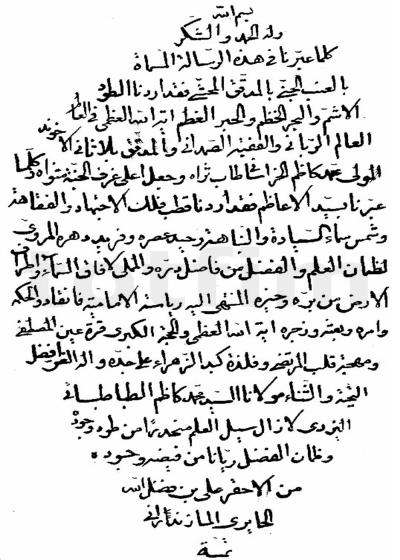 بسم الله
وله الحمد والشكر
كلما عبرنا في هذه الرسالة المسماة
بالمحقق المدقق فقد اردنا الطود
الاشم والبحر الخضم والحبر الاعظم اية الله العظمى في العالم
العالم الرباني والفقيه الصمداني والمدقق بلا ثاني الاخوند
المولى محمد كاظم الخراساني طاب ثراه وجعل اعلى غرف الجنة مثواه وكلما
عبرنا بسيد الاعاظم فقد اردنا قطب فلك الاجتهاد والفقاهة
وشمس سماء السيادة والنباهة وحيد عصره وفريد دهره المروي
لظمآن العلم والفضل من فاضل بره والملي لافاق السماء
الارض من بره وخيره المنتهى اليه رياسة الامامية فانقاد والحكمه
وامره وبعثه وزجره اية الله العظمى والحجة الكبرى قرة عين المصطفى
ومهجة قلب المرتضى وفلذة كبد الزهراء على جده واله افضل
التحية والثناء مولانا السيد محمد كاظم الطباطبائي
اليزدي لا زال سيل العلم منحدرا من طود وجوده
وظمآن الفضل ريانا من فيضه وجوده
من الاحقر علي بن فضل الله
الحايري المازندراني
تمة